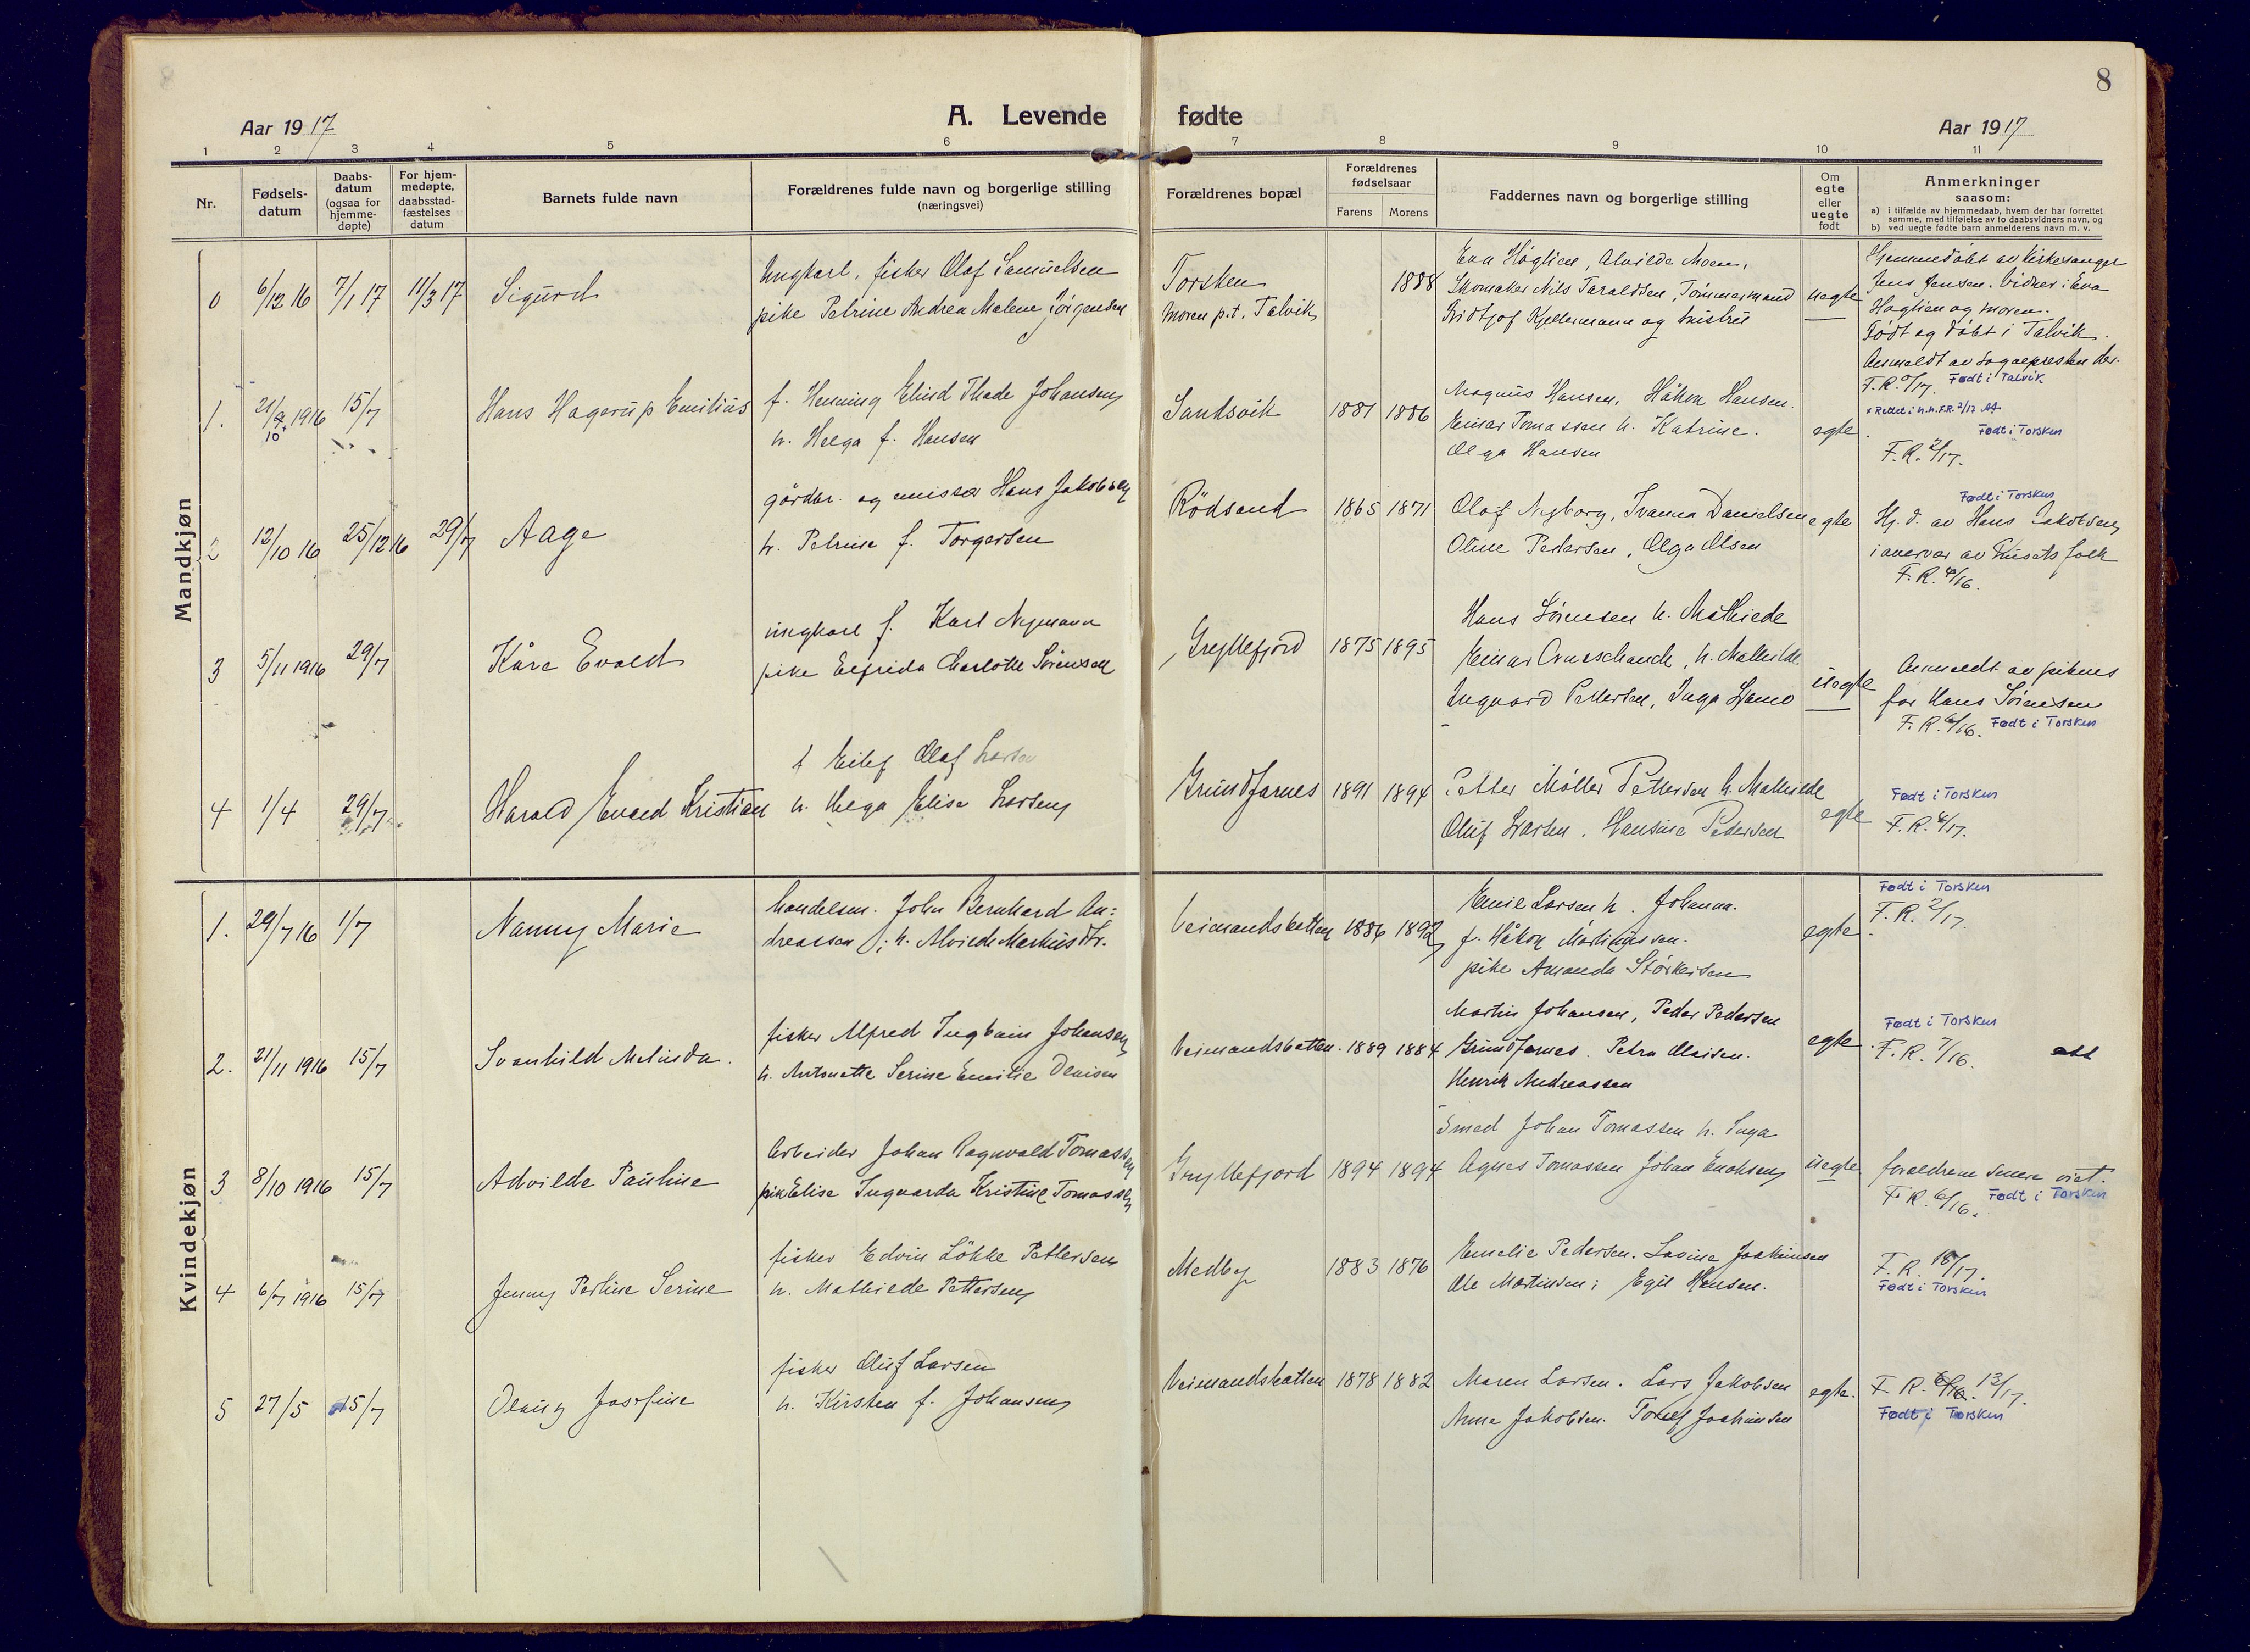 8
Aar 1917
A. Levende fødte
Aar 1917
1 2 3 4 5 6 7 8 9 10 11
Nr.
Fødsels-
datum
Daabs-
datum
(ogsaa for
hjemme-
døpte)
For hjem-
medøpte,
daabsstad-
fæstelses
datum
Barnets fulde navn
Forældrenes fulde navn og borgerlige stilling
(næringsvei)
Forældrenes bopæl
Forældrenes
fødselsaar
Farens
Morens
Faddernes navn og borgerlige stilling
Om
egte
eller
uegte
født
Anmerkninger
saasom:
a) i tilfælde av hjemmedaab, hvem der har forrettet
samme, med tilføielse av to daabsvidners navn, og
b) ved uegte fødte barn anmelderens navn m. v.
Mandkjøn
0 6/12 16 7/1 17 11/3 17 Sigurd
Ungkarl, fisker Olaf Samuelsen
pike Petrine Andrea Malene Jörgensen
Torsken
Moren p.t. Talvik
1888
Eva Høglien, Alvilde Moen,
Skomaker Nils Taraldsen, Tømmermand
Fridtjof Kjellermann og hustru
uegte
Hjemmedøbt av kirkesanger
Jens Jensen. Vidner: Eva
Høglien og moren.
Født og døbt i Talvik.
Anmeldt av sognepresten der.
F.R. /17. Født i Talvik
1. 21/10 1916 15/7 Hans Hagerup Emilius
f. Henning Elind Thade Johansen
h. Helga f. Hansen
Sandsvik 1881 1886
Magnus Hansen, Håkon Hansen.
Einar Tomassen h. Katrine.
Olga Hansen
egte.
Født i Torsken
F.R. 2/17.
2 12/10 16 25/12 16 29/7 Aage
gårdbr. og Hans Jakobsen
h. Petrine f. Torgersen
Rödsand 1865 1871
Olaf Nyborg, Ivanna Danielsen
Oline Pedersen, Olga Olsen
egte
Født i Torsken
Hj. d. av Hans Jakobsen
i overvær av husets folk
F.R. 4/16.
3 5/11 1916 29/7 Kåre Evald
ungkarl f. Karl Nymann
pike Elfrida Charlotte Sörensen
Gryllefjord 1875 1895
Hans Sörensen h. Mathilde
Einar h. Mathilde
Ingvard Pettersen, Inga
uegte
Anmeldt av pikens
far Hans Sörensen
F.R. 6/16. Født i Torsken
4 1/4 29/7 Harald Evald Kristian
f Eilif Olaf Larsen
h. Helga Elise Larsen
Grundfarnes 1891 1894
Petter Möller Pettersen h. Mathilde
Oluf Larsen, Hansine Pedersen
egte
Født i Torsken
F.R. 4/17.
Kvindekjøn
1. 29/7 16 1/7 Nanny Marie
handelsm. John Bernhard An-
dreassen; h. Alvilde Markusdtr.
Veimandsbatten 1886 1892
Emil Larsen h. Johanna.
f. Håkon Martinussen.
pike Amanda Störkersen
egte
Født i Torsken
F.R. 2/17.
2. 21/11 1916 15/7 Svanhild Melinda.
fisker Alfred Ingbain Johansen
h. Antonette Serine Emilie Olaisen
Veimandsbatten. 1889 1884
Martin Johansen, Peder Pedersen
Grundfarnes. Petra Olaisen.
Henrik Andreassen
egte.
Født i Torsken
F.R. 7/16. att
3 8/10 1916 15/7 Advilde Pauline
Arbeider Johan Ragnvald Tomassen
pike Elise Ingvarda Kristine Tomassen
Gryllefjord 1894 1894
Smed Johan Tomassen h. Inga
Agnes Tomassen Johan Enoksen
uegte
foreldrene senere viet.
F.R. 6/16. Født i Torsken
4 6/7 1916 15/7 Jenny Perline Serine
fisker Edvin Lökke Pettersen
h. Mathilde Pettersen
Medby 1883 1876
Emelie Pedersen. Lovise Joakimsen
Ole Martinsen; Egil Hansen.
F.R. 18/17.
Født i Torsken
5 27/5 15/7 Olaug Josefine
fisker Oluf Larsen
h. Kirsten f. Johansen
Veimandsbatten 1878 1882
Maren Larsen. Lars Jakobsen
Anna Jakobsen. Torolf Joakimsen
egte.
F.R. 6/16. 13/17.
Født i Torsken